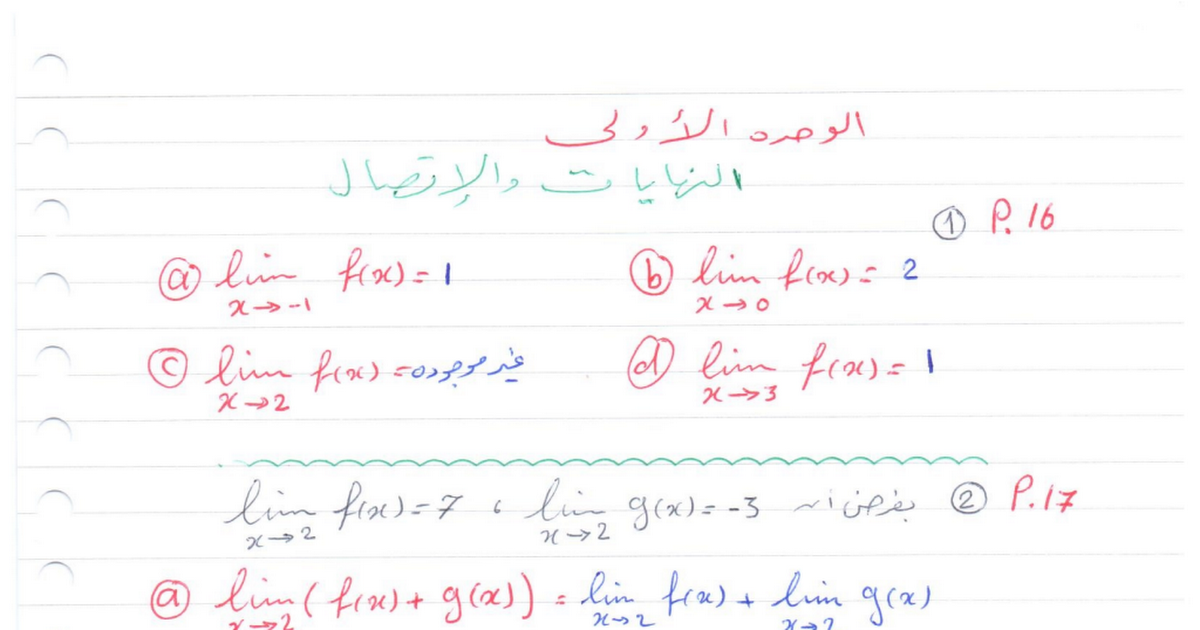 الوحده الأولى
النهايات والإتصال
① P. 16
ⓐ lim x→-1 f(x) = 1 ⓑ lim x→0 f(x) = 2
ⓒ lim x→2 f(x) = غير موجوده ⓓ lim x→3 f(x) = 1
② P.17 بفرض أن lim x→2 g(x) = -3 ، lim x→2 f(x) = 7
ⓐ lim x→2 (f(x) + g(x)) = lim x→2 f(x) + lim x→2 g(x)